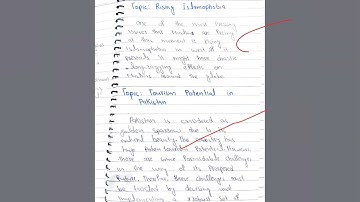 Topic: Rising Islamophobia
One of the most pressing
issues that Muslims are facing
at this moment is rising
Islamophobia in world. If it
persists it might have drastic
long-lasting effects on
Muslims around the globe.
Topic: Tourism Potential in
Pakistan
Pakistan is considered as
golden sparrow due to its
natural beauty. The country has
huge tourism Potential. However,
there are some Formidable challenges
in the way of its Progress.
Therefore, these challenges must
be tackled by devising and
implementing a robust set of